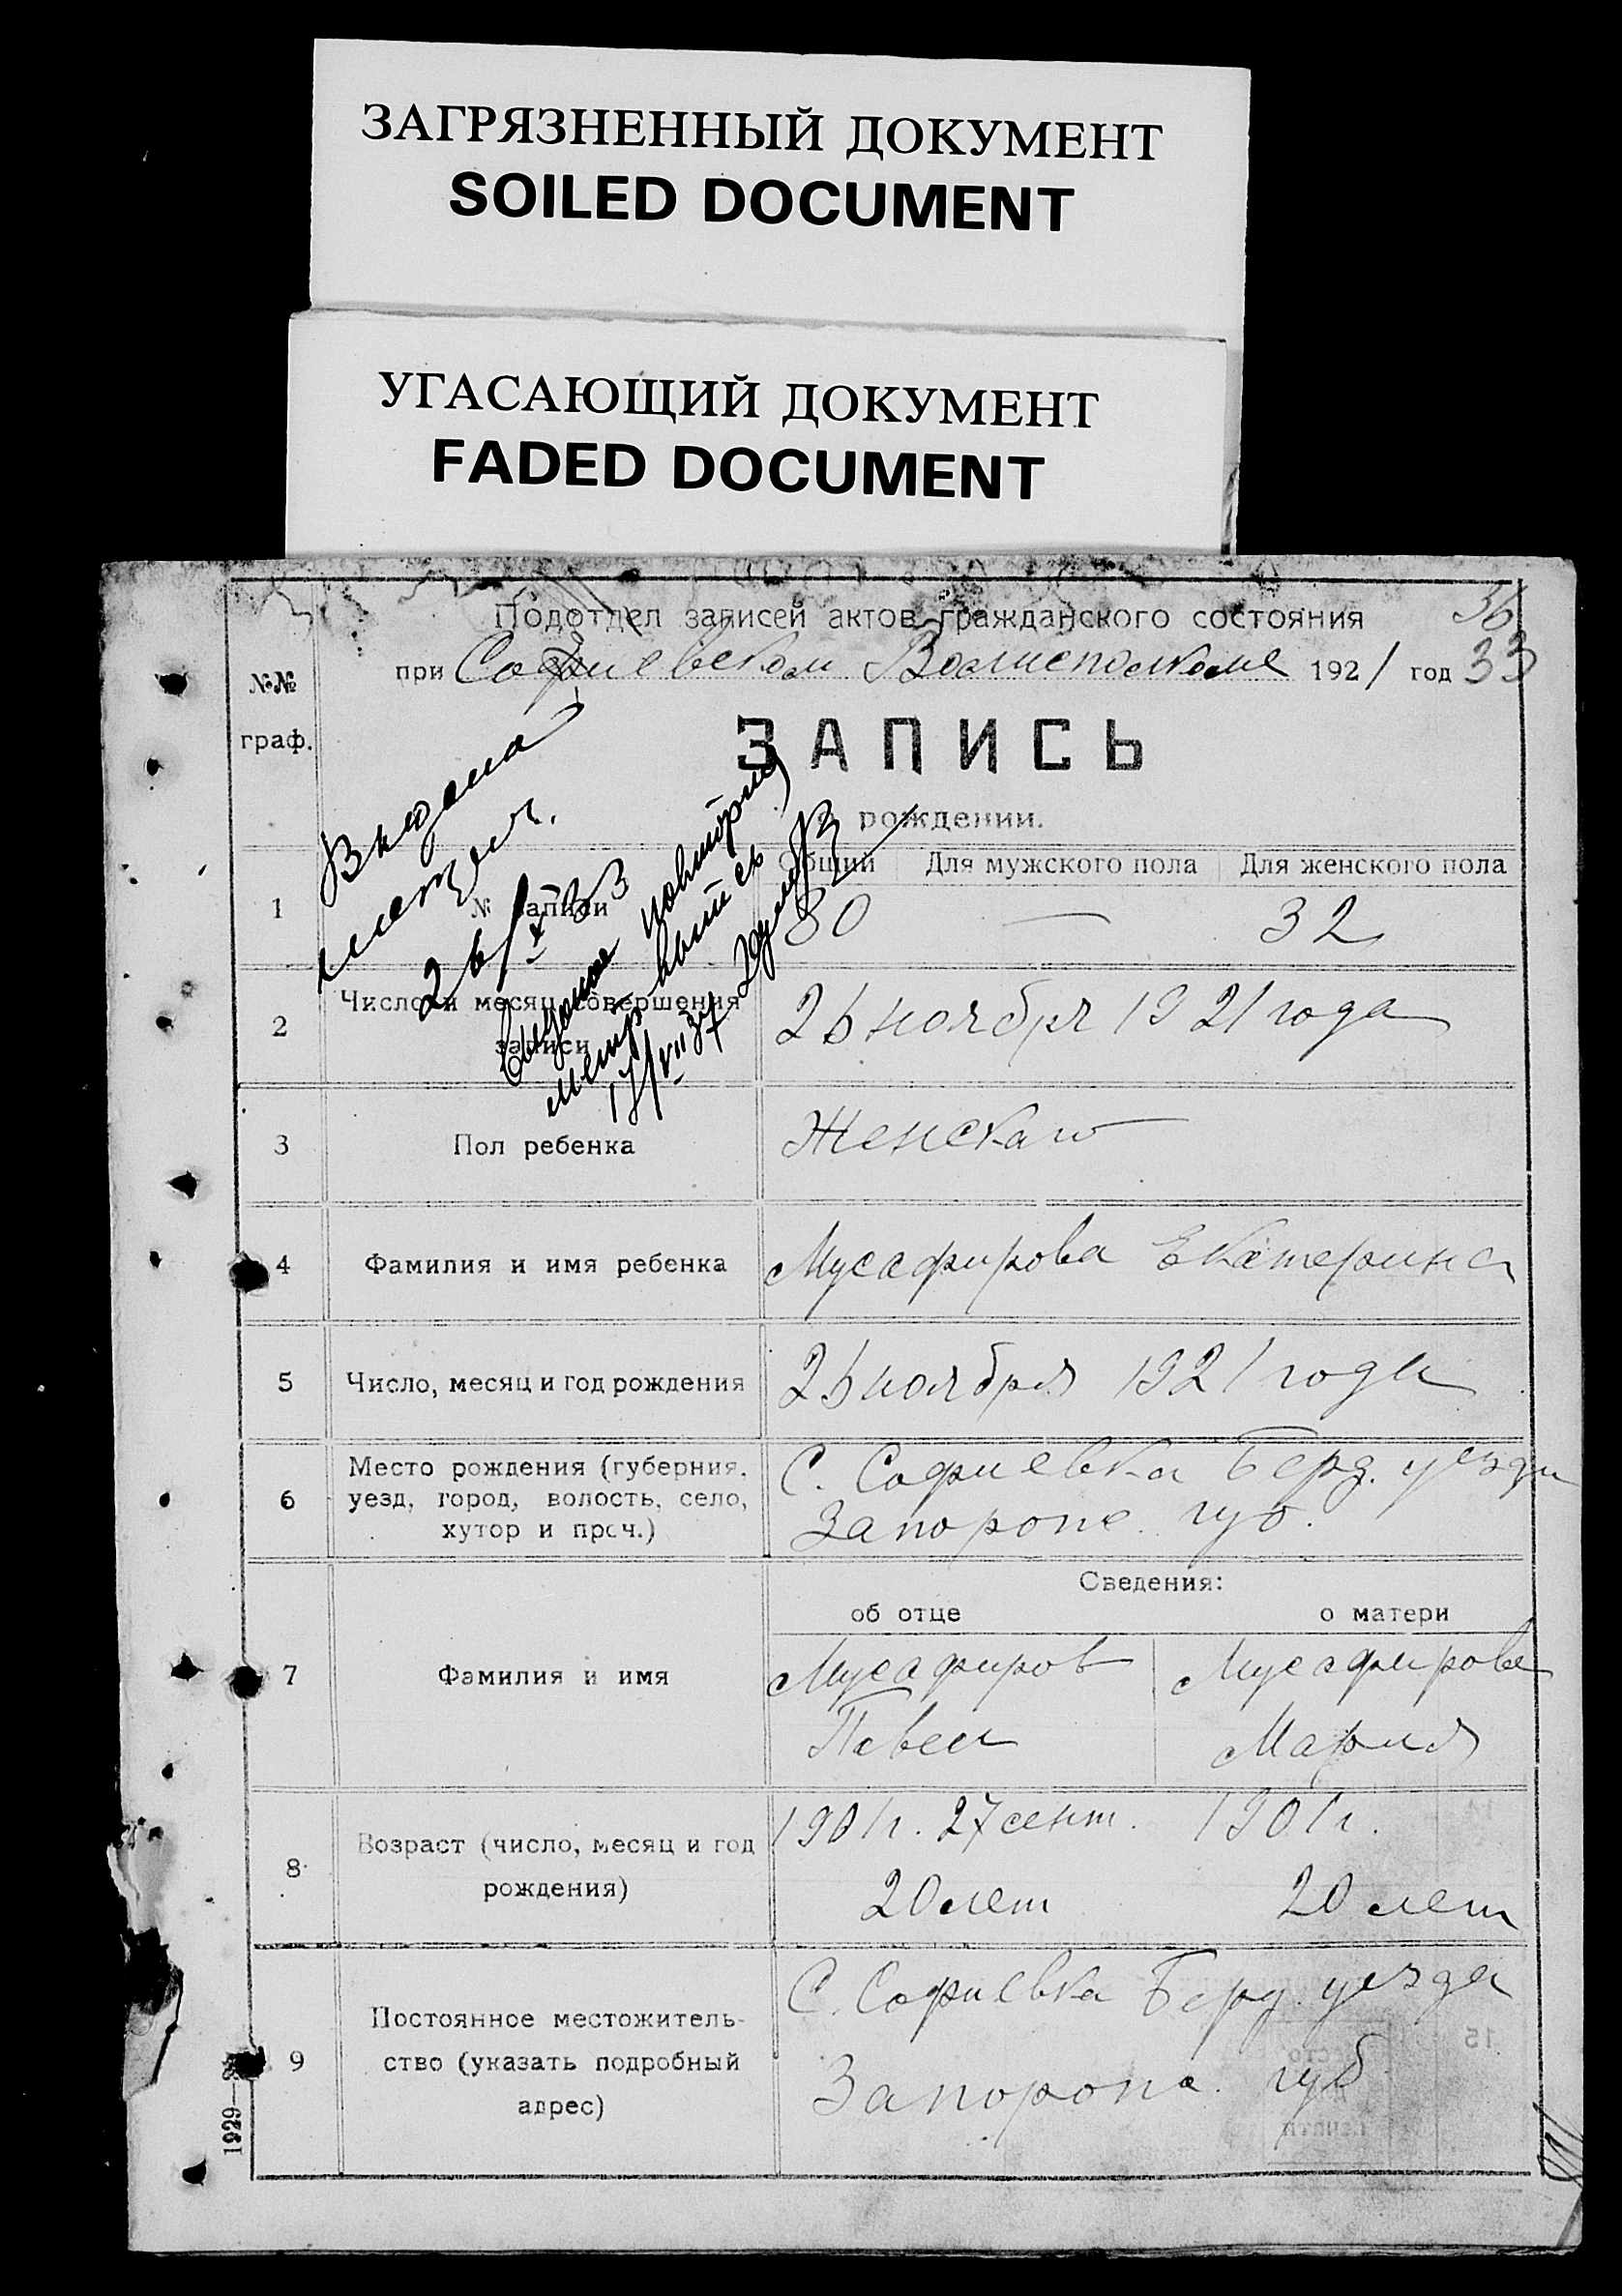 ЗАГРЯЗНЕННЫЙ ДОКУМЕНТ
SOILED DOCUMENT
УГАСАЮЩИЙ ДОКУМЕНТ
FADED DOCUMENT
36
Подотдел записей актов гражданского состояния
при Софиевском Волисполкоме 1921 год 33
№№
граф.
ЗАПИСЬ
рождении.
Выдана
26/X 33
повторно
Общий Для мужского пола Для женского пола
1 № записи 80 — 32
2 Число и месяц совершения
записи
26 ноября 1921 года
3 Пол ребенка Женскаго
4 Фамилия и имя ребенка Мусафирова Екатерина
5 Число, месяц и год рождения 26 ноября 1921 года
6 Место рождения (губерния,
уезд, город, волость, село,
хутор и проч.)
С. Софиевка Берд. уезда
Запорож. губ.
Сведения:
об отце о матери
7 Фамилия и имя
Мусафиров Мусафирова
Павел Мария
8 Возраст (число, месяц и год
рождения)
1901г. 27 сент. 1901г.
20 лет 20 лет
9 Постоянное местожитель-
ство (указать подробный
адрес)
С. Софиевка Берд. уезда
Запорож. губ.